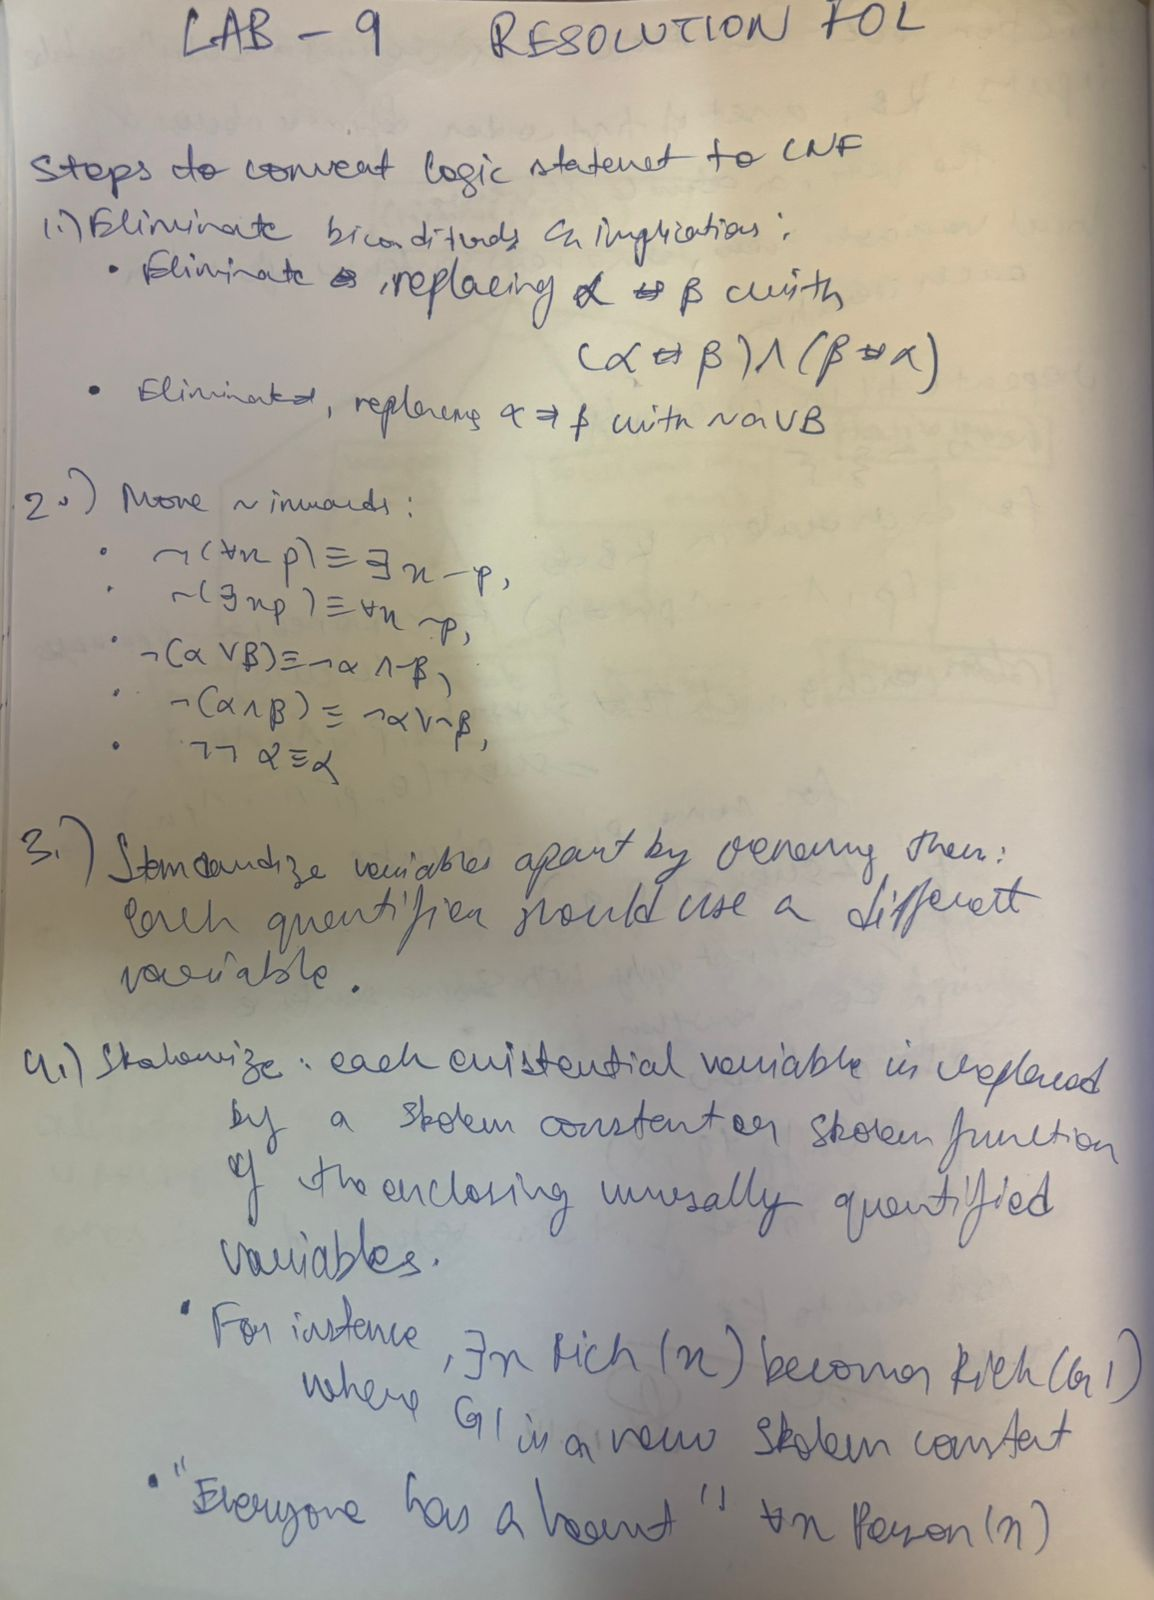 LAB - 9 RESOLUTION FOL
Steps to convert logic statenet to CNF
1.) Eliminate biconditionals & implications:
• Eliminate ⇔, replacing α ⇔ β with
(α ⇔ β) ∧ (β ⇔ α)
• Eliminate ⇒, replacing α ⇒ β with ~α ∨ β
2.) Move ~ inwards:
• ~(∀x p) ≡ ∃x ~p,
• ~(∃x p) ≡ ∀x ~p,
• ¬(α ∨ β) ≡ ¬α ∧ ¬β,
• ¬(α ∧ β) ≡ ¬α ∨ ¬β,
• ¬¬ α ≡ α
3.) Standardize variables apart by renaming them:
each quantifier should use a different
variable.
4.) Skolemize: each existential variable is replaced
by a skolem constant or skolem function
of the enclosing unversally quantified
variables.
• For instance, ∃x Rich(x) becomes Rich(G1)
where G1 is a new skolem constant
• "Everyone has a heart" ∀x Person(x)